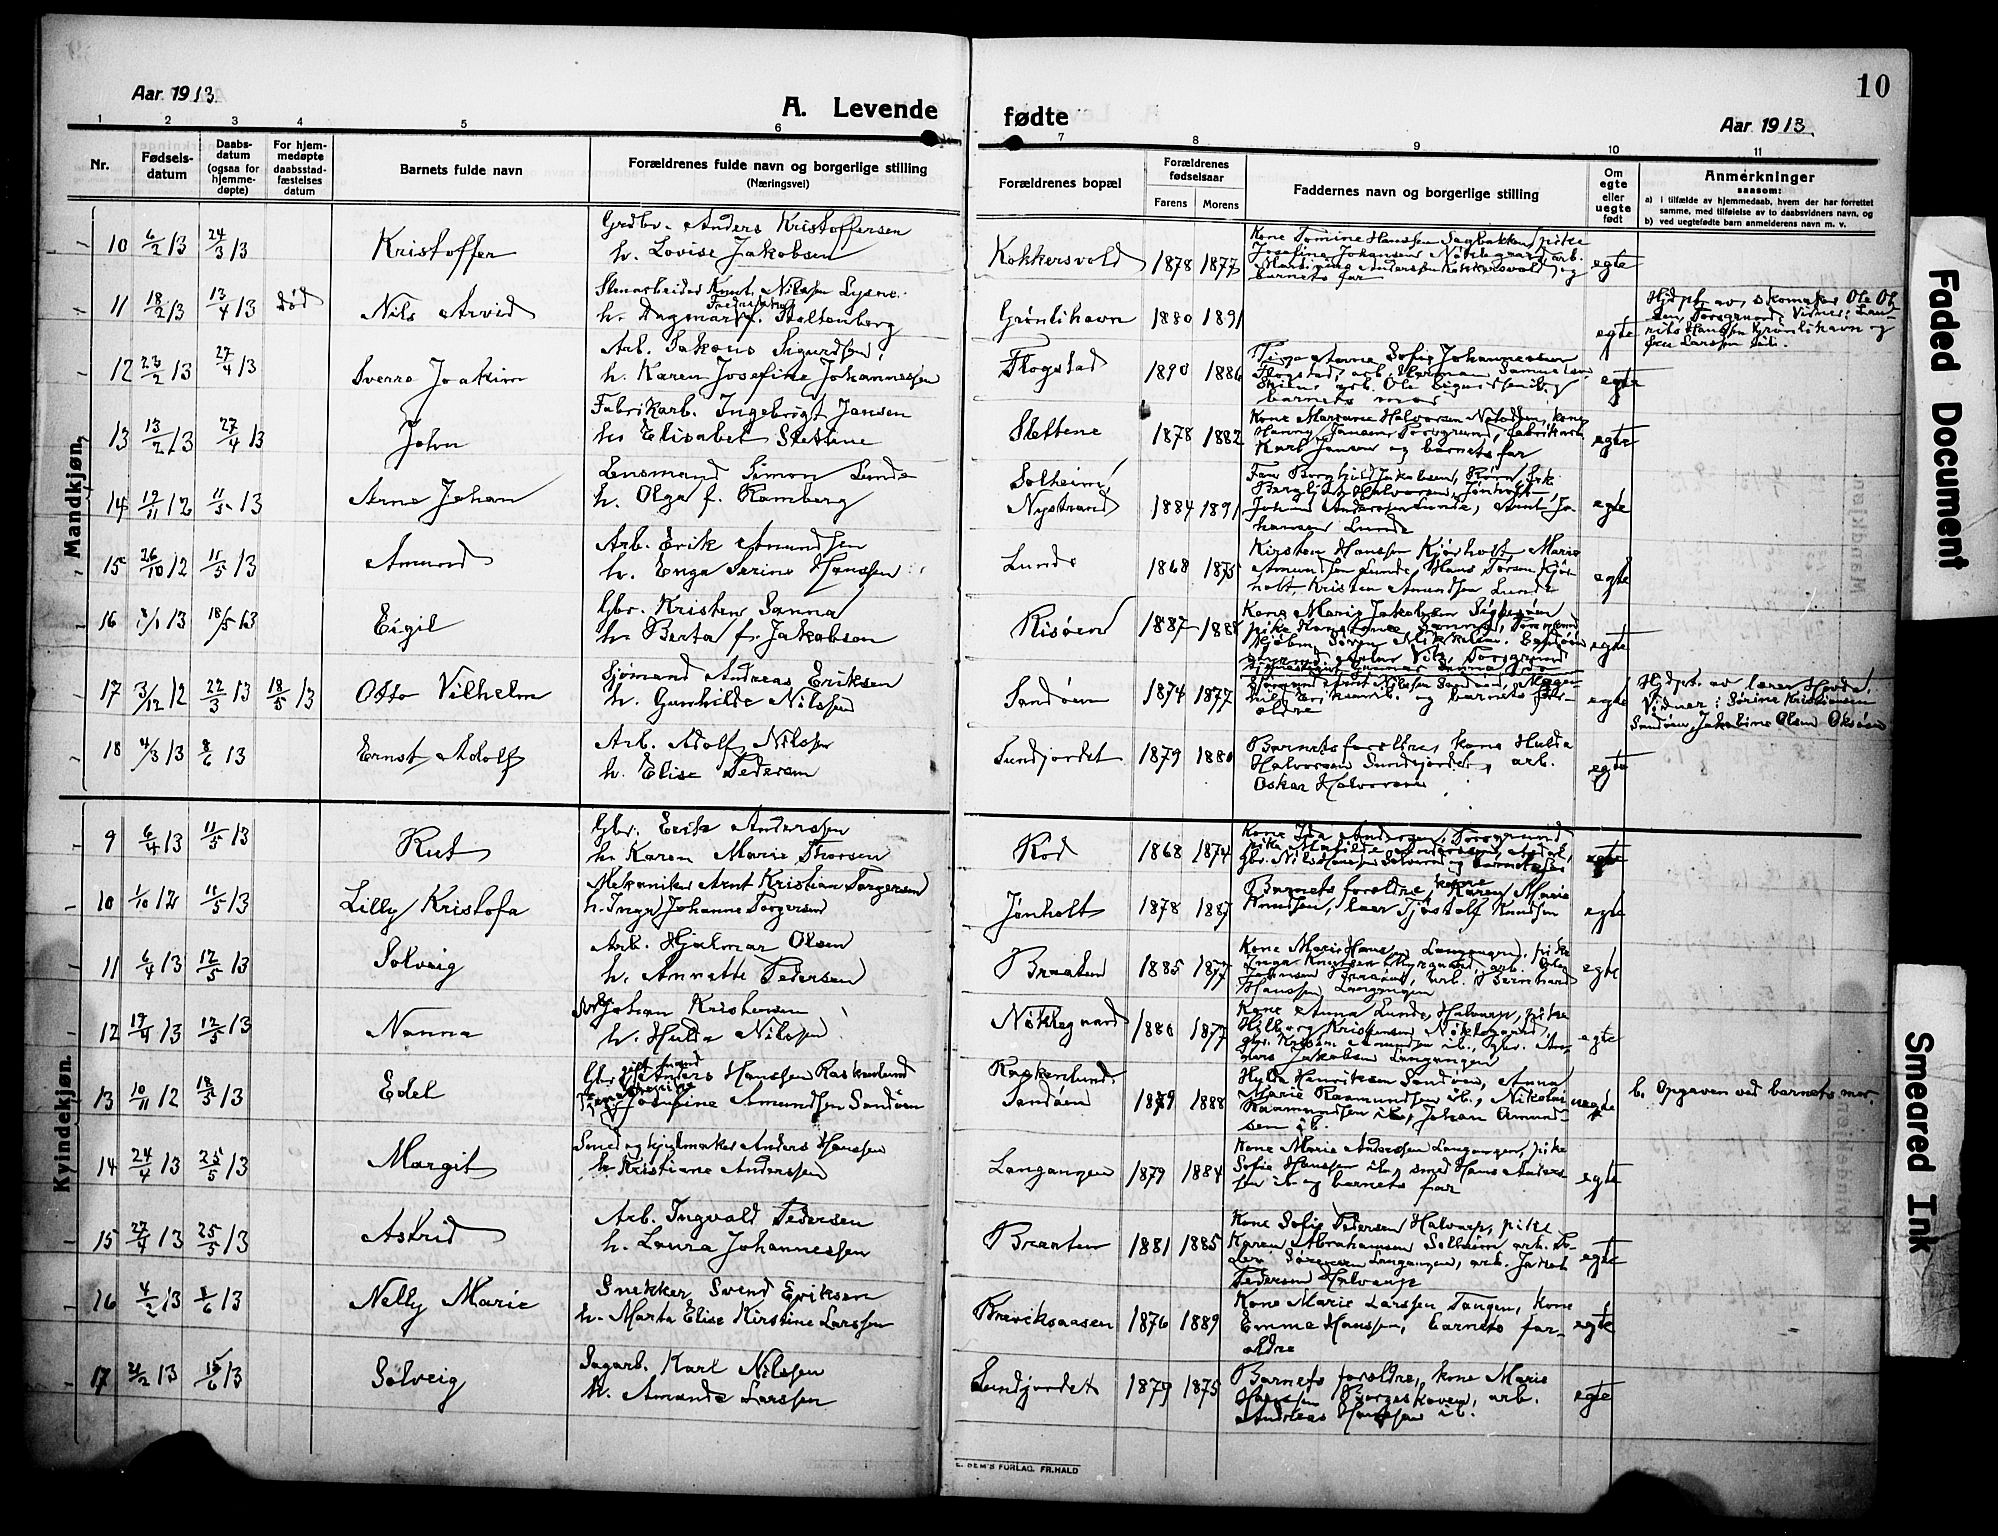 10
Aar. 1913
A. Levende fødte
Aar. 1913
1 2 3 4 5 6 7 8 9 10 11
Nr.
Fødsels-
datum
Daabs-
datum
(ogsaa for
hjemme-
døpte)
For hjem-
medøpte
daabsstad-
fæstelses
datum
Barnets fulde navn
Forældrenes fulde navn og borgerlige stilling
(Næringsvei)
Forældrenes bopæl
Forældrenes
fødselsaar
Farens Morens
Faddernes navn og borgerlige stilling
Om
egte
eller
uegte
født
Anmerkninger
saasom:
a) i tilfælde av hjemmedaab, hvem der har forrettet
samme, med tilføielse av to daabsvidners navn, og
b) ved uegtefødte barn anmelderens navn m. v.
Mandkjøn.
10 6/2 13 24/3 13 Kristoffer
Grdbr. Anders Kristoffersen
h. Lovise Jakobsen
Kokkersvold 1878 1877
Kone Tomine Hanssen Sagbakken, pike
Josefine Johansen Nøklegaard, arb.
barnets far
egte
11 18/2 13 13/4 13 død Nils Arvid
Stenarbeider Knut Nilssen Lysne
h. Dagmar f. Stoltenberg
Grønlihavn 1880 1891
egte
Hjdpt. av skomaker Ole Ol-
sen Porsgrund. Vidner: Lau-
rits Hanssen Grønlihavn og
Larssen
12 23/2 13 27/4 13 Sverre Joakim
Arb. Jakous Sigurdsen
h. Karen Josefine Johannessen
Flogstad 1890 1886
Pige Anna Sofie Johannessen
Flogstad, arb. Herman Samuelsen
Skien, arb. Ole Sigurdsen og
barnets mor
egte
13 13/2 13 27/4 13 John
Fabrikarb. Ingebrigt Jansen
h. Elisabet Slettene
Slettene 1878 1882
Kone Mariane Halvorsen kone
Hanny Jansen Porsgrund, fabrikarb.
Karl Jansen og barnets far
egte
14 19/11 12 11/5 13 Arne Johan
Lensmand Simon Lunde
h. Olga f. Ramberg
Solheim,
Nystrand 1884 1891
Frk. Borghild Jakobsen, Frk.
Bergljot Halvorsen, Jønholt
Johan Anderssen Lunde, Arnt Jo-
hansen Lunde
egte
15 26/10 12 11/5 13 Amund
Arb. Erik Amundsen
h. Enga Serine Hanssen
Lunde 1868 1875
Kirsten Hanssen Kjørholt, Marie
Amundsen Lunde, Hans Torsen Kjør-
holt, Kristen Amundsen Lunde
egte
16 1/1 13 18/5 13 Eigil
Gbr. Kristen Sanna
h. Berta f. Jakobsen
Risøen 1887 1888
Kone Marie Jakobsen
egte
17 3/12 12 22/3 13 18/5 13 Otto Vilhelm
Sjømand Andreas Eriksen
h. Gunhilde Nilssen
Sandøen 1874 1877
Sjømand Arnt Nilssen Sandøen,
og barnets for-
ældre
egte
Hjdpt. av lærer Hovde.
Vidner: Sørine Kristiansen
Sandøen, Jakobine Olsen Oksøen
18 4/3 13 8/6 13 Ernst Adolf
Arb. Adolf Nilssen
h. Elise Pedersen
Lundjordet 1879 1880
Barnets forældre, kone Hulda
Halvorsen Lundejordet, arb.
Oskar Halvorsen
egte
Kvindekjøn.
9 6/4 13 11/5 13 Rut
Gbr. Erik Anderssen
h. Karen Marie Thorsen
Rød 1868 1874
Kone Ida Andersen, Porsgrund
pike Matilde Anderssen,
gbr. Nils Hanssen og barnets far
egte
10 1/10 12 11/5 13 Lilly Kristofa
Mekaniker Arnt Kristian Torgersen
h. Inga Johanne Torgersen
Jønholt 1878 1887
Barnets forældre, kone Karen Marie
Knudsen, lærer Tjøstolf Knudsen
egte
11 6/4 13 12/5 13 Solveig
Arb. Hjalmar Olsen
h. Annette Pedersen
Braaten 1885 1877
Kone Marie Hanssen Langangen, pike
Inga Knutsen Myrgaard, arb. Ole
Johnsen arb. Bernhard
Hanssen Langangen
egte
12 19/4 13 12/5 13 Nanna
Johan Kristensen
h. Hulda Nilssen
Nøklegaard 1880 1877
Kone Anna Lunde, Halvarp, pike
Hilborg Kristensen Nøklegaard,
gbr. Kristen Amundsen ib., gbr. An-
ders Jakobsen Langangen
egte
13 10/11 12 18/5 13 Edel
Gbr. gift mand Anders Hanssen Raskenlund
Josefine Amundsen Sandøen
Raskenlund,
Sandøen 1879 1888
Hulda Henriksen Sandøen, Anna
Marie Raamundsen ib., Nikolai
Raamundsen ib., Johan Amund-
sen ib.
uegte
b. Opgaven ved barnets mor.
14 24/4 13 25/5 13 Margit
Smed og hjulmaker Anders Hanssen
h. Kristiane Anderssen
Langangen 1879 1884
Kone Marie Anderssen Langangen, pike
Sofie Hanssen ib., smed Hans Anders-
sen ib. og barnets far
egte
15 27/4 13 25/5 13 Astrid
Arb. Ingvald Pedersen
h. Laura Johannessen
Braaten 1881 1885
Kone Sofie Pedersen Halvarp, pike
Karen Abrahamsen Solheim, arb. Pe-
der Sørensen Langangen, arb. Jakob
Pedersen Halvarp
egte
16 4/2 13 8/6 13 Nelly Marie
Snekker Svend Eriksen
h. Marta Elise Kirstine Larssen
Breviksaasen 1876 1889
Kone Marie Larssen, Tangen, kone
Emme Hanssen, barnets for-
ældre
egte
17 2/2 13 15/6 13 Solveig
Sagarb. Karl Nilssen
h. Amanda Larssen
Lundjordet 1879 1875
Barnets forældre, kone Marie
Hanssen Borgeskoven, arb.
Andreas Hanssen ib.
egte
E. SEM'S FORLAG. FR.HALD
Faded Document
Smeared Ink